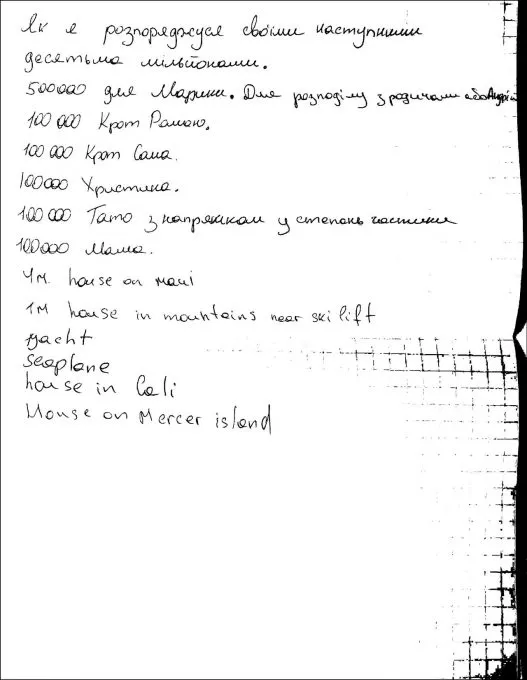 Як я розпоряджуся своїми наступними
десятьма мільйонами.
500000 для Марики. Для розподілу з родичами або Андрі
100 000 Крот Рамаю.
100 000 Крот Саша.
100000 Христина.
100000 Тато з напрямком у степань частини
100000 Мама.
house on Maui
1M house in mountains near ski lift
yacht
seaplane
house in Cali
House on Mercer island